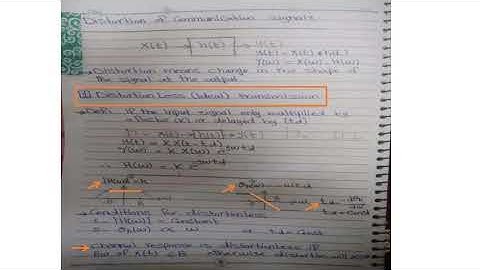 Distortion of Communication signals
X(t) → h(t) → y(t)
y(t) = X(t) * h(t)
Y(ω) = X(ω) · H(ω)
→ Distortion means change in the shape of
the signal at the output.
Distortion Less (Ideal) transmission
→ Def: If the input signal only multiplied by
or delayed by (td)
y(t) = K X(t - td)
Y(ω) = K X(ω) e^-jωtd
∴ H(ω) = K e^-jωtd
|H(ω)| = K
→ Conditions for distortionless
|H(ω)| = Constant
∝ ω → td = Const
→ Channel response is distortionless if
BW of X(t) ≤ B otherwise distortion will